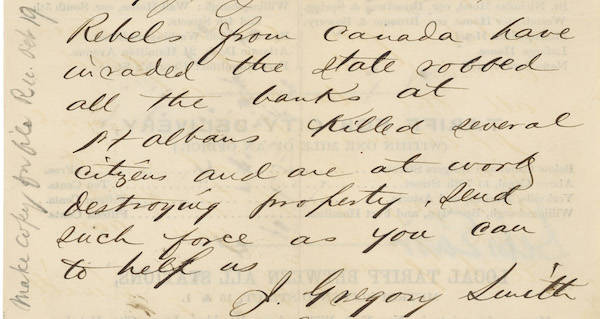 Rebels from Canada have
invaded the state robbed
all the banks at
St albans killed several
citizens and are at work
destroying property. send
such force as you can
to help us
J. Gregory Smith
Make copy for file